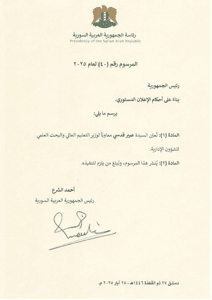 رئاسة الجمهورية العربية السورية
Presidency of the Syrian Arab Republic
المرسوم رقم (٤٠) لعام ٢٠٢٥
رئيس الجمهورية
بناءً على أحكام الإعلان الدستوري.
يرسم ما يلي:
المادة (١): تُعيّن السيدة عبير قدسي معاوناً لوزير التعليم العالي والبحث العلمي
للشؤون الإدارية.
المادة (٢): يُنشر هذا المرسوم، ويُبلغ من يلزم لتنفيذه.
أحمد الشرع
رئيس الجمهورية العربية السورية
دمشق ٢٧ ذو القعدة ١٤٤٦هـ - ٢٥ أيار ٢٠٢٥ م.